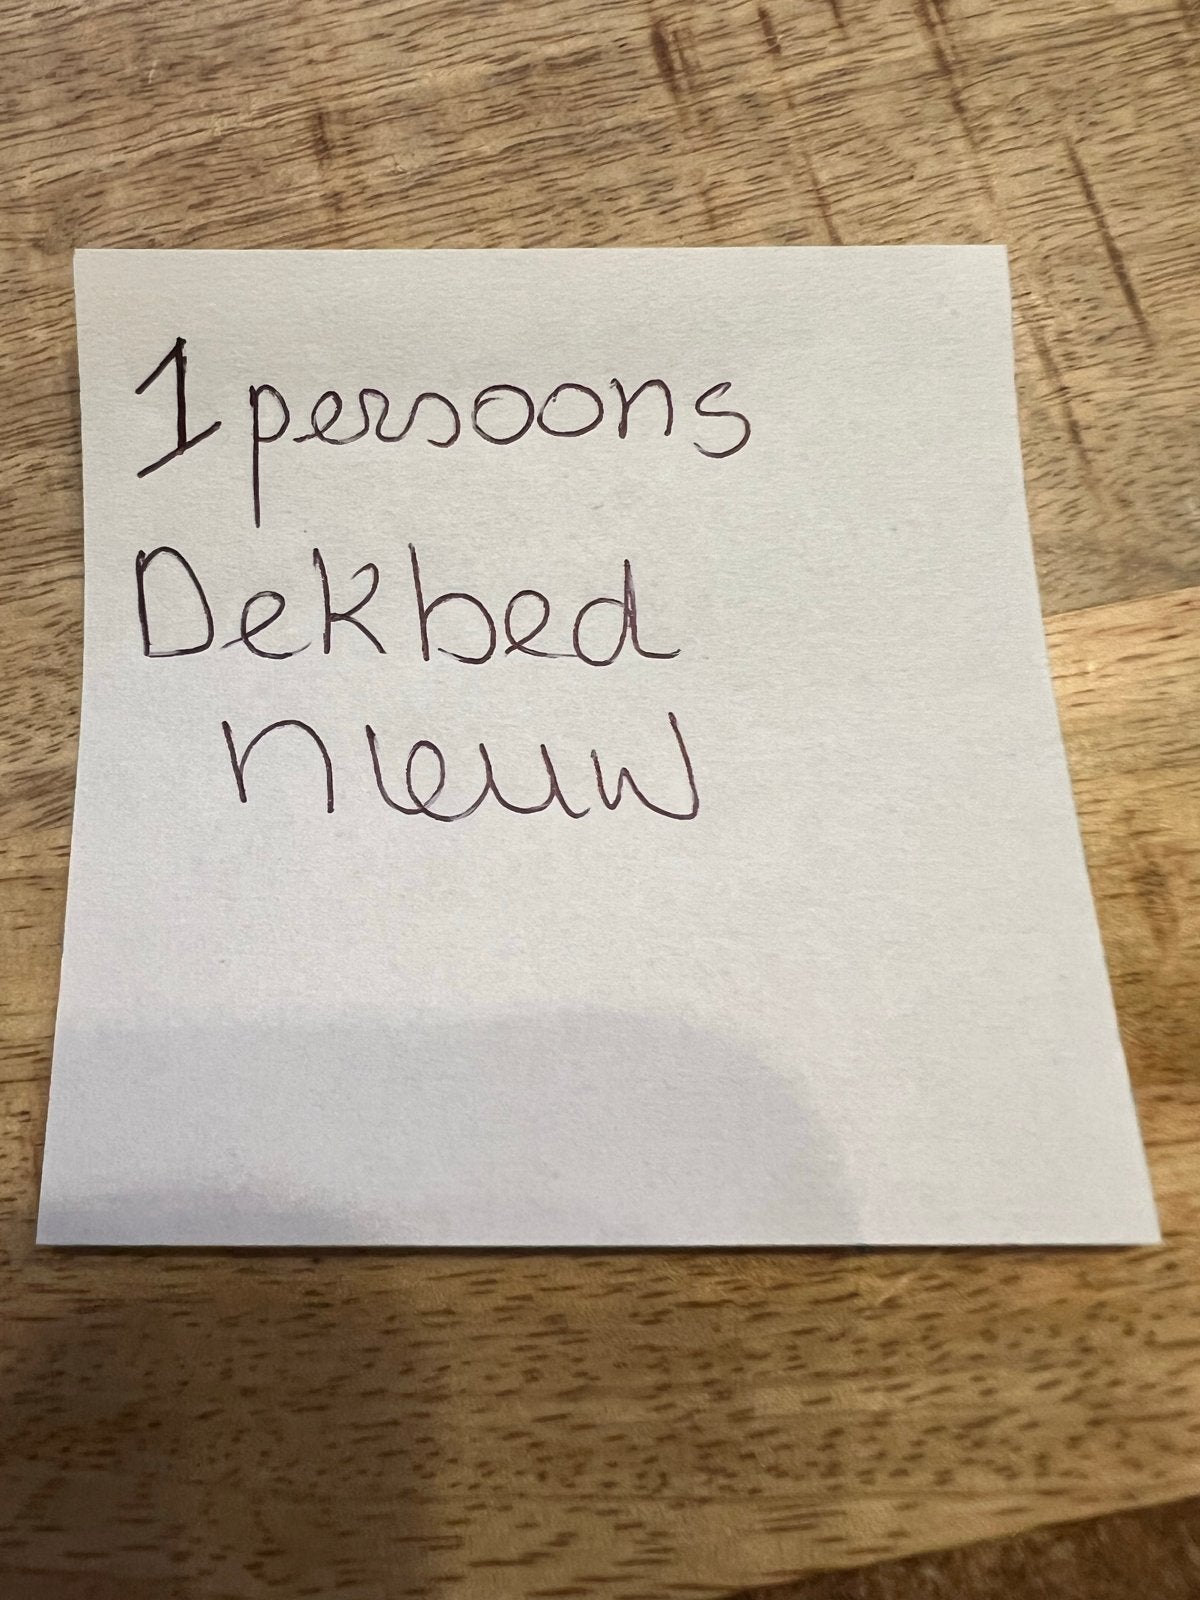 1 persoons
Dekbed
nieuw